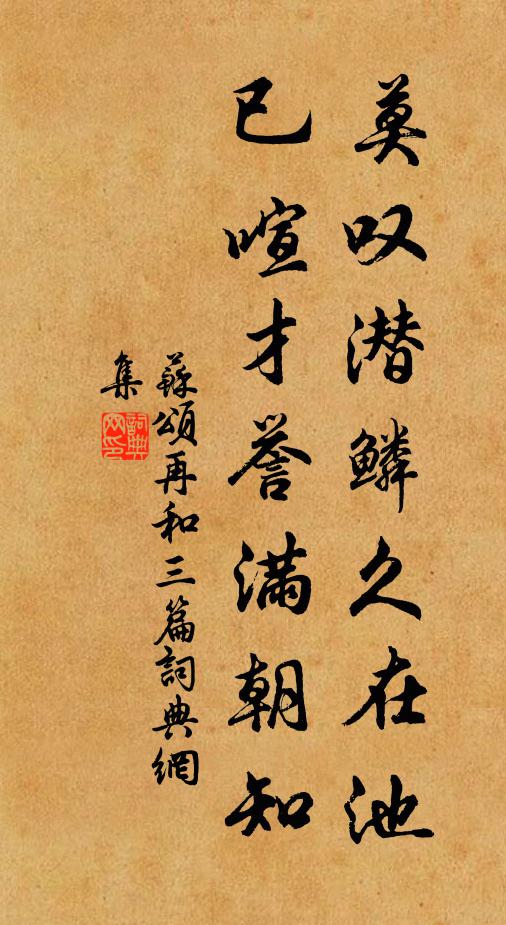 莫叹潜鳞久在池
已喧才誉满朝知
蘇頌再和三篇詞典網
集
詞典
网印